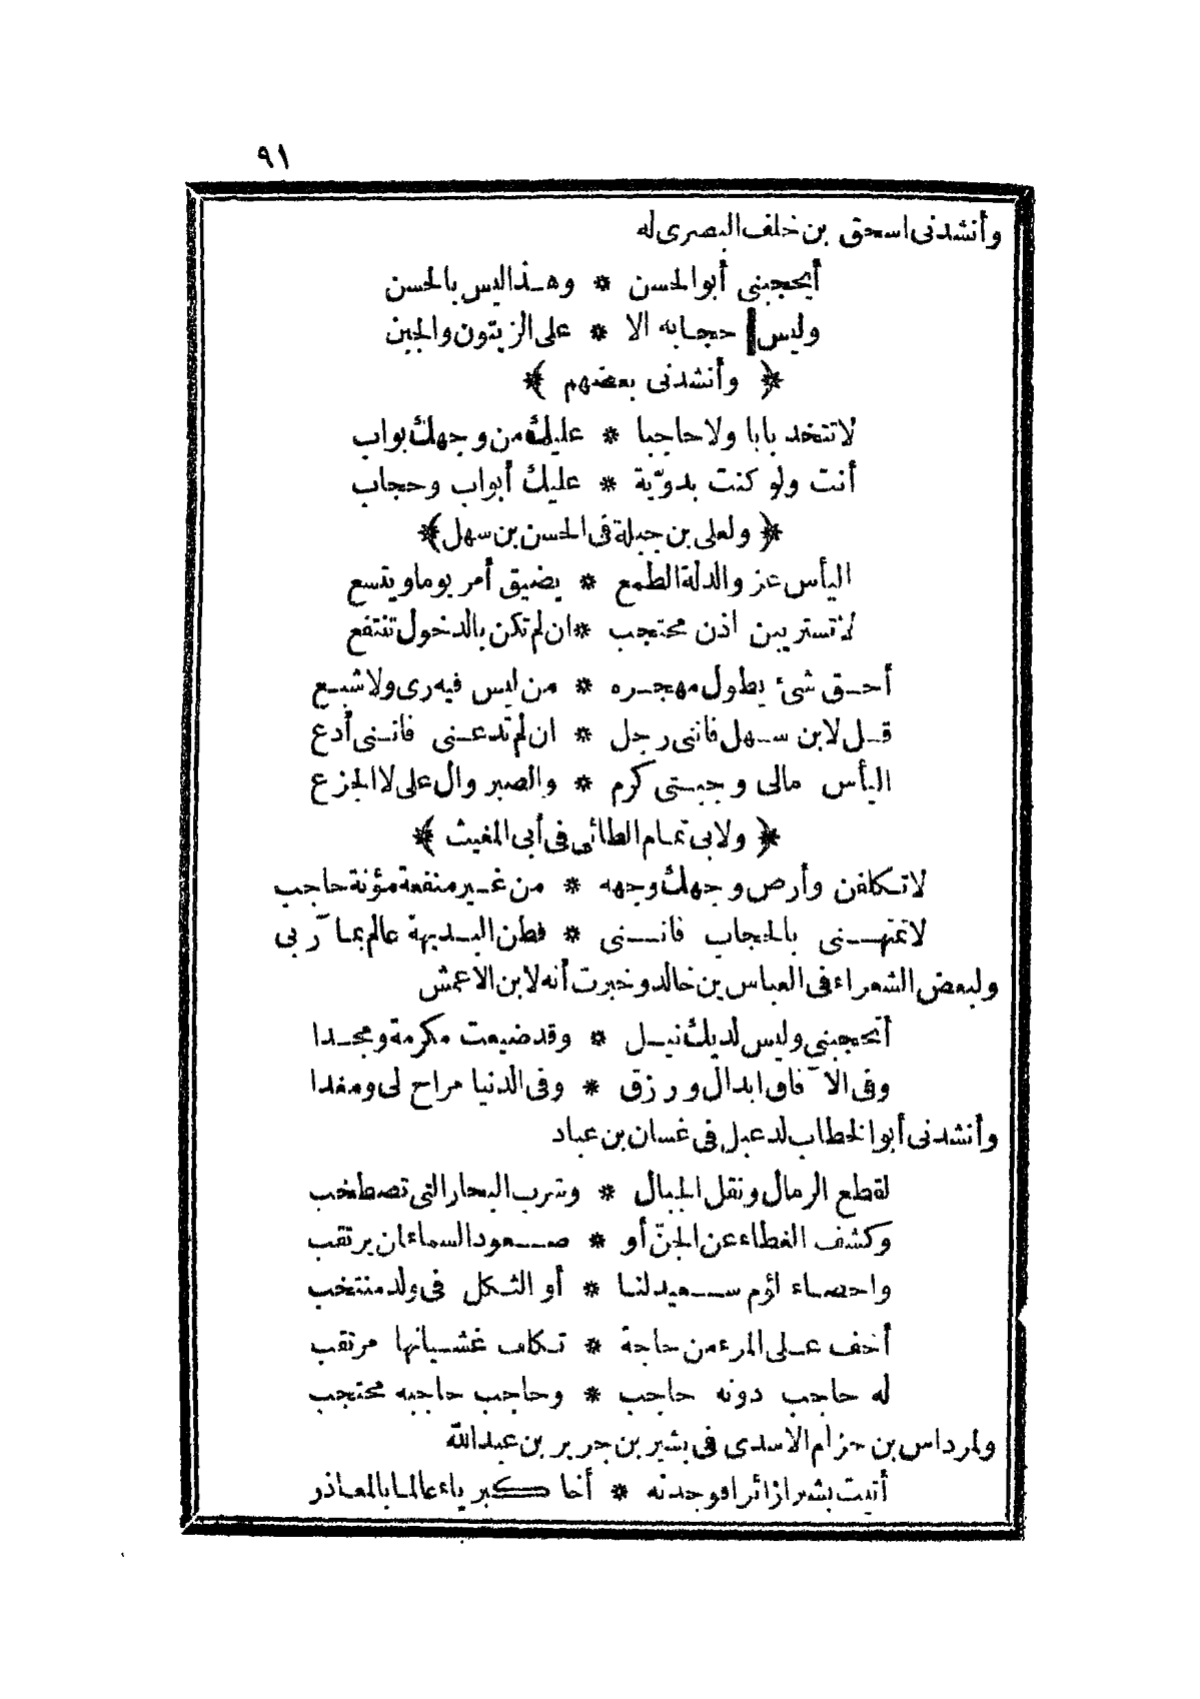 ٩١
وأنشدنى اسحق بن خلف البصرى له
أيحجبنى أبو الحسن * وهذا ليس بالحسن
وليس حجابه الا * على الزيتون والجبن
﴿ وأنشدنى بعضهم ﴾
لاتتخد بابا ولا حاجبا * عليك من وجهك بواب
أنت ولو كنت بدوّية * عليك أبواب وحجاب
﴿ ولعلى بن جبلة فى الحسن بن سهل ﴾
اليأس عز والذلة الطمع * يضيق أمر يوما ويتسع
لاتستريبن اذن محتجب * ان لم تكن بالدخول تنتفع
أحق شئ يطول مهجره * من ليس فيه رى ولا شبع
قل لابن سهل فاننى رجل * ان لم تدعنى فاننى أدع
اليأس مالى وجبتى كرم * والصبر وال على لا الجزع
﴿ ولابى تمام الطائى فى أبى المغيث ﴾
لاتكلفن وأرض وجهك وجهه * من غير منفعة مؤنة حاجب
لاتمتهنى بالحجاب فاننى * فطن البديهة عالم بمآربى
ولبعض الشعراء فى العباس بن خالد وخبرت أنه لابن الاعمش
أتحجبنى وليس لديك نيل * وقد ضيعت مكرمة ومجدا
وفى الآفاق ابدال ورزق * وفى الدنيا مراح لى ومغدا
وأنشدنى أبو الخطاب لدعبل فى غسان بن عباد
لقطع الرمال ونقل الجبال * وشرب البحار التى تصطخب
وكشف الغطاء عن الجنّ أو * صعود السماء ان يرتقب
واحصاء لؤم سعيد لنا * أو الثكل فى ولد منتخب
أخف على المرء من حاجة * تكلف غشيانها مرتقب
له حاجب دونه حاجب * وحاجب حاجبه محتجب
ولمرداس بن حزام الاسدى فى بشير بن جرير بن عبد الله
أتيت بشيرا زائرا فوجدته * أخا كبرياء عالما بالمعاذر